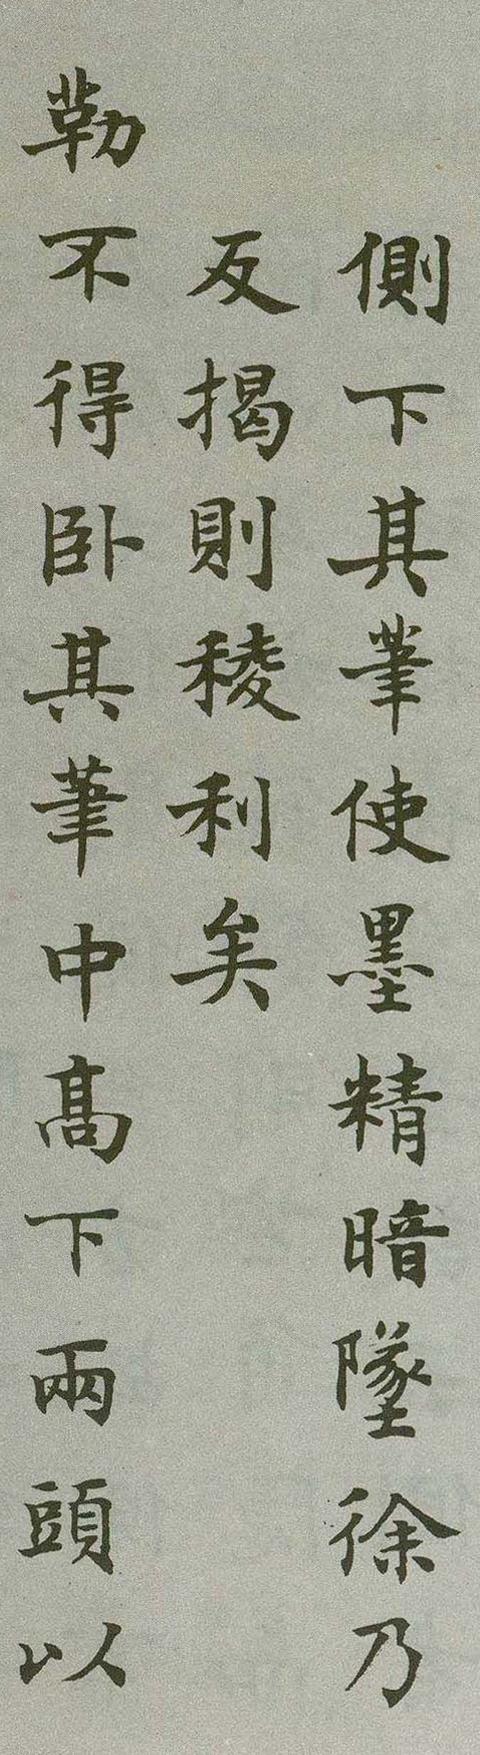 側下其筆使墨精暗墜徐乃
反揭則稜利矣
勒不得卧其筆中高下兩頭以